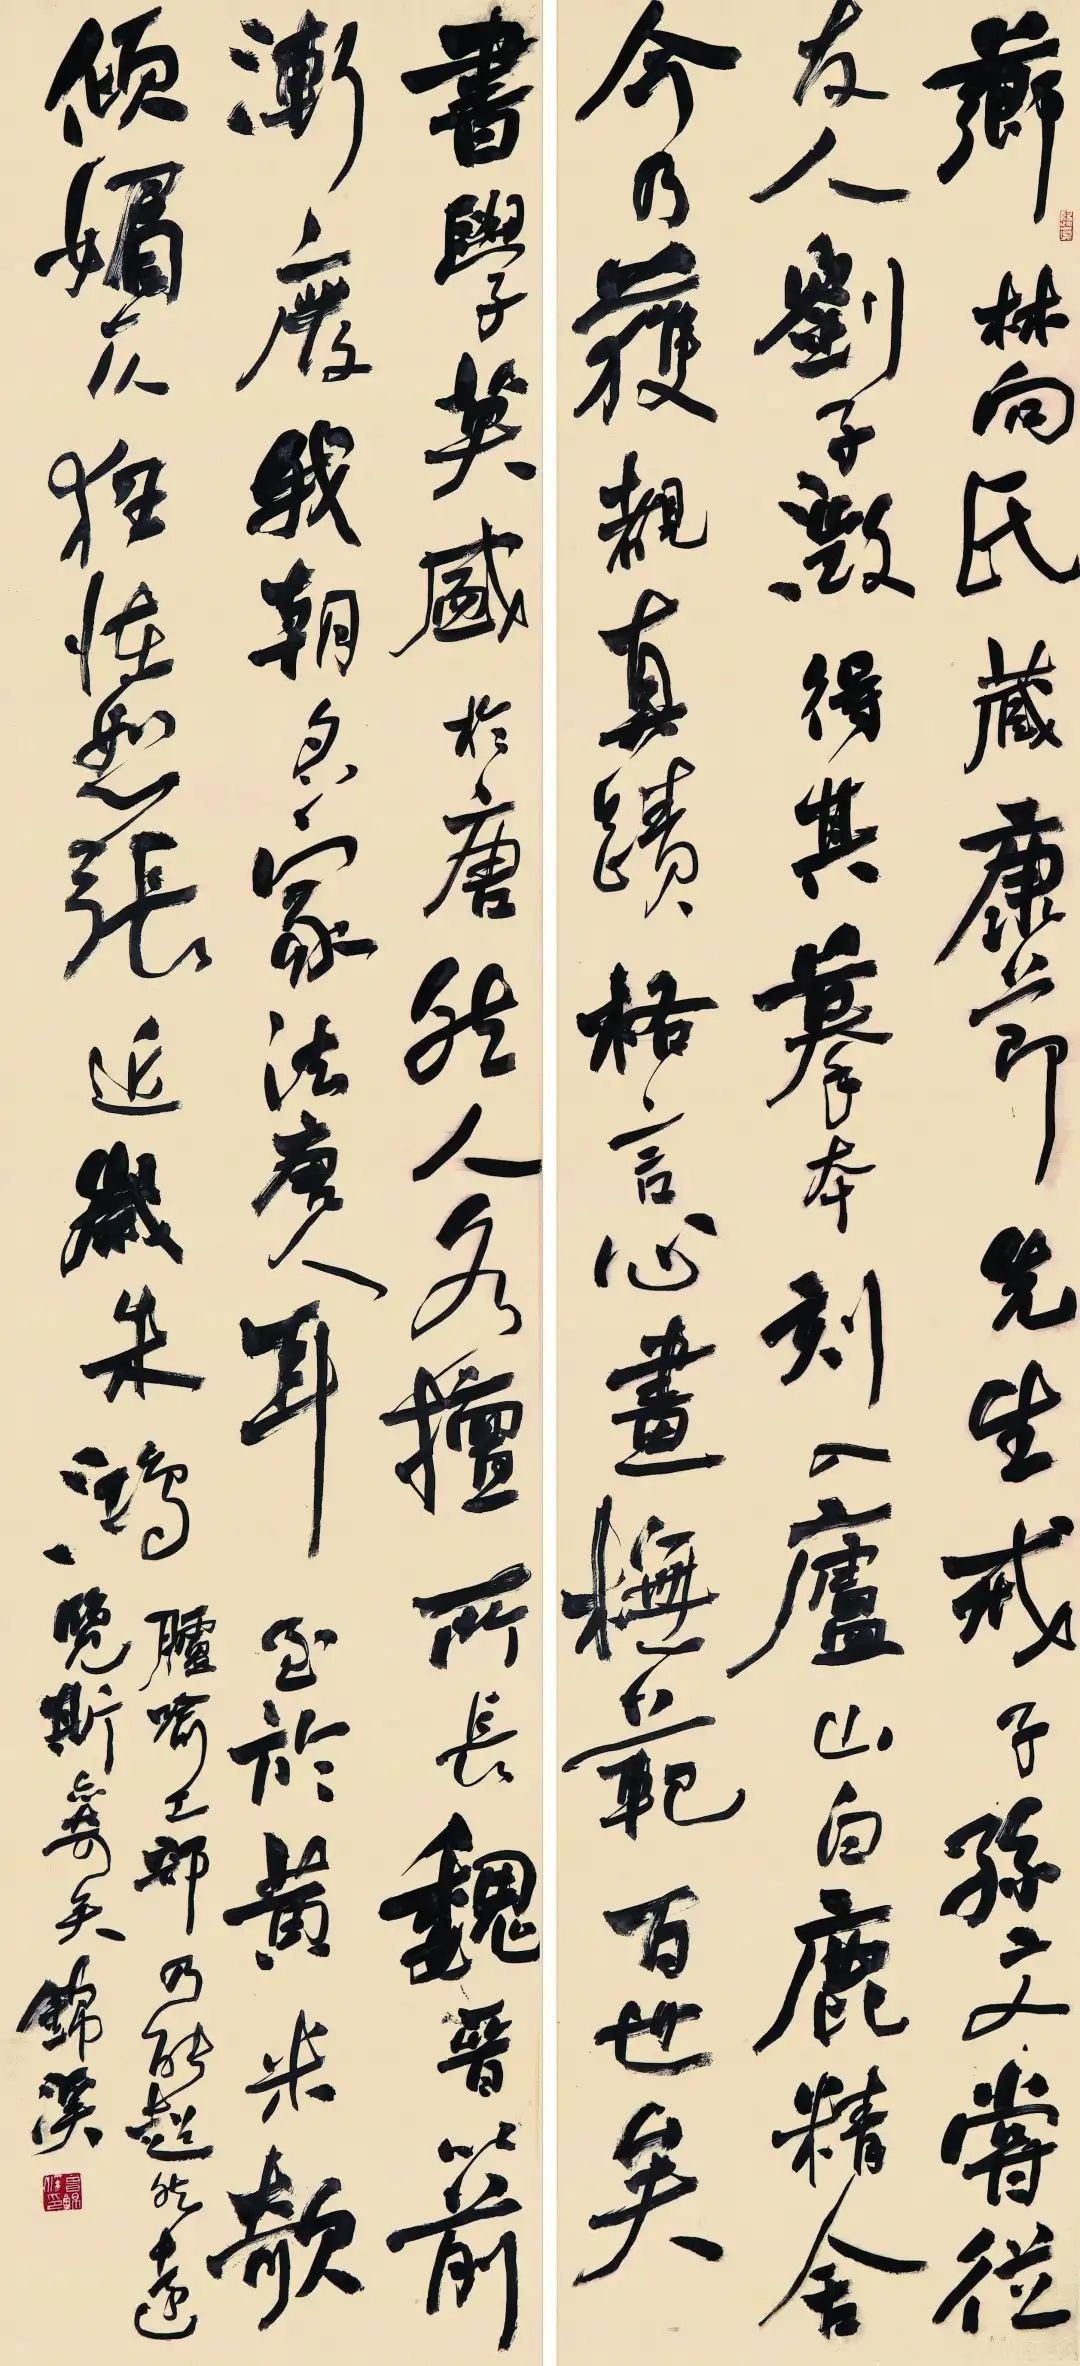 薌林向氏藏康節先生戒子孫文嘗從
友人劉子澂得其摹本刻入廬山白鹿精舍
今乃獲覩真蹟格言心畫橅範百世矣
書學莫盛於唐然人各擅所長魏晉以前
漸廢我朝名家法唐人耳至於黃米欹
傾媚仄狂怪怒張近歲朱鴻
臚喻工部乃能超然遠
覽斯奇矣錦溪